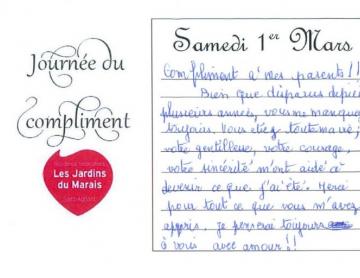 Journée du
compliment
Les Jardins
du Marais
Samedi 1er Mars
Compliment à mes parents!!
Bien que disparus depuis
plusieurs années, vous me manquez
toujours. Vous étiez toute ma vie,
votre gentillesse, votre courage,
votre sincérité m'ont aidé à
devenir ce que j'ai été. Merci
pour tout ce que vous m'avez
appris. Je penserai toujours
à vous avec amour!!